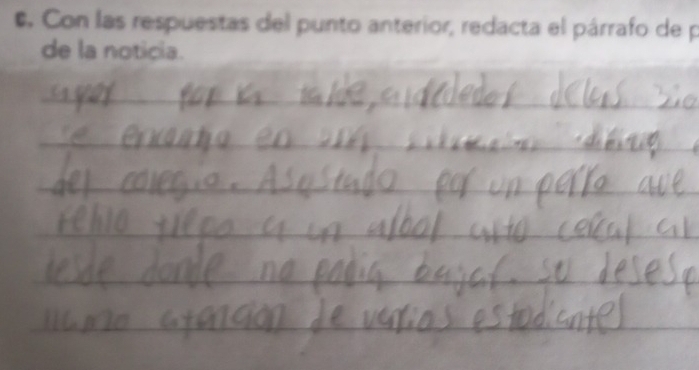 c. Con las respuestas del punto anterior, redacta el párrafo de p
de la noticia.
ayer por la tarde, alrededor delas
se encontro en una
del colegio. Asostado por un perro que
trepo a un albol alto cercal al
desde donde no podia bajar. su deses
llamo atencion de varios estodiantes